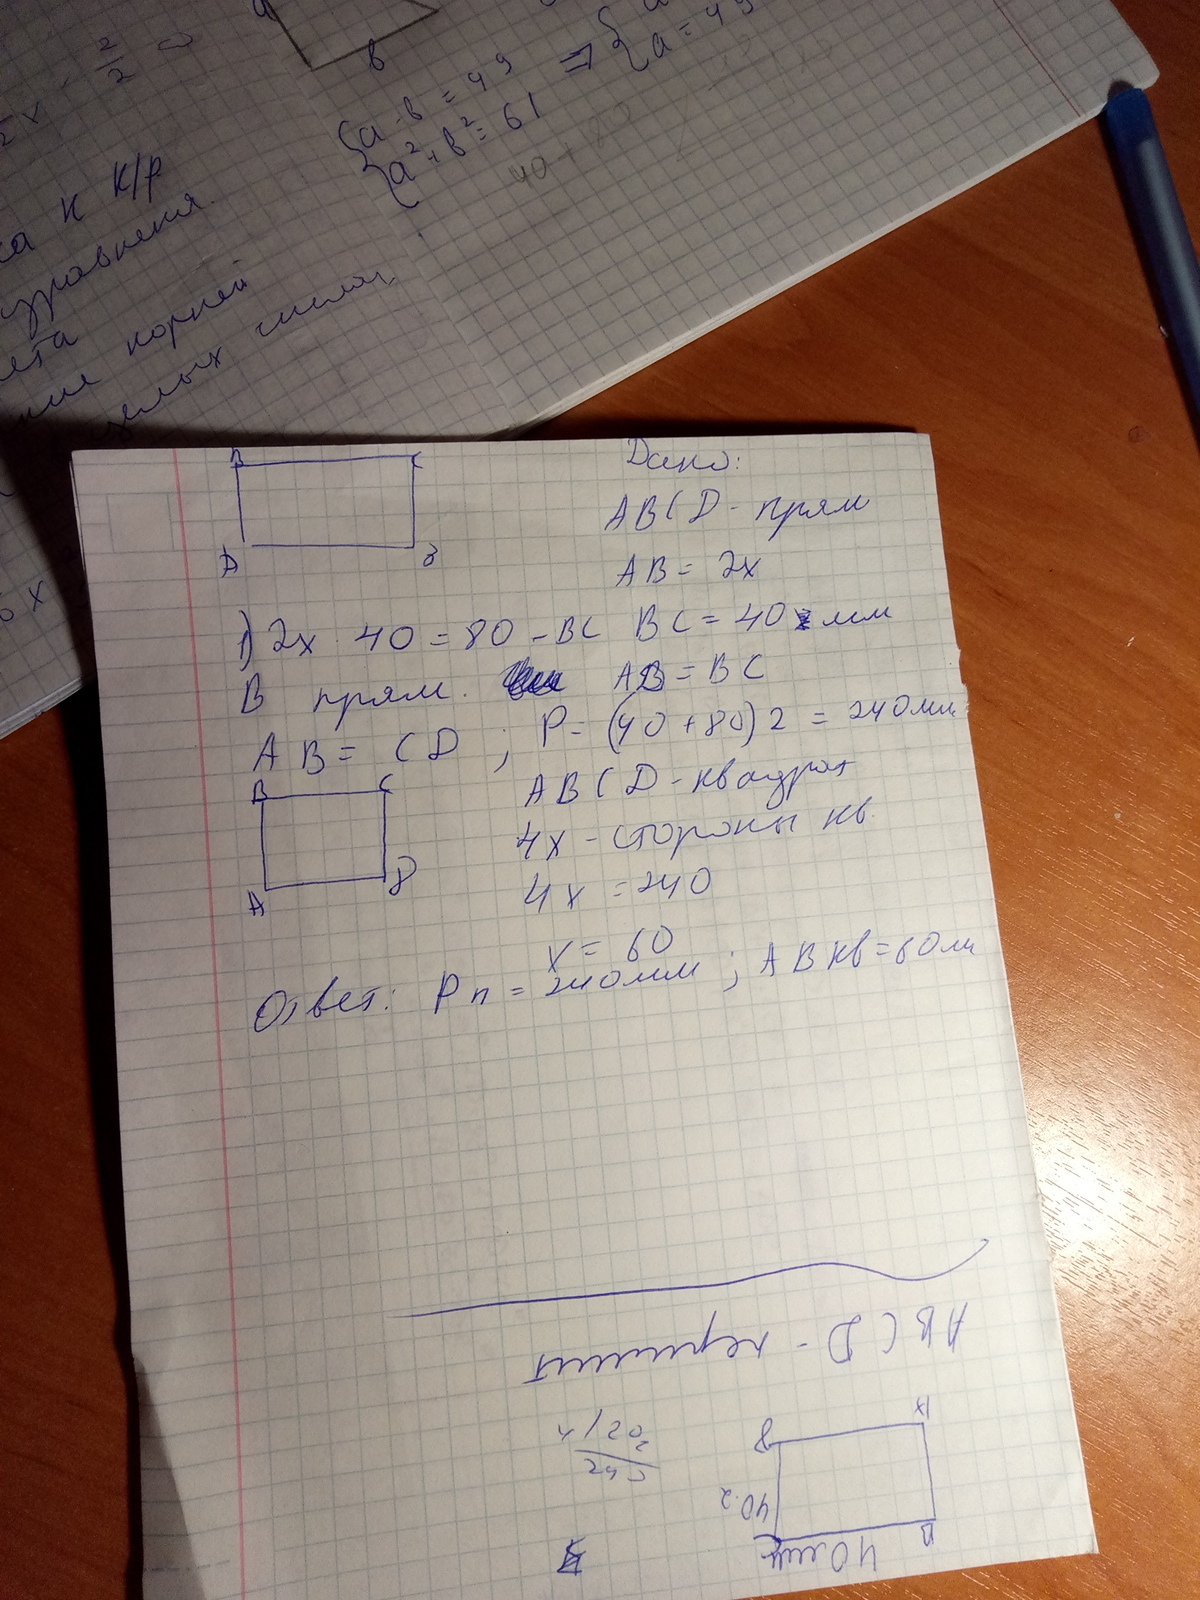 в
a · в = 49
a² + в² = 61
a = 49
40
к к/р
уравнения.
корней
целых чисел,
B C
A D
Дано:
ABCD - прям
AB = 2x
1) 2x 40 = 80 - BC BC = 40 мм
В прям. AB = BC
AB = CD ; P = (40 + 80) 2 = 240 мм
B C
A D
ABCD - квадрат
4x - стороны кв.
4x = 240
x = 60
Ответ: Pп = 240 мм ; AB кв = 60 мм
40 мм
40·2
240
ABCD -